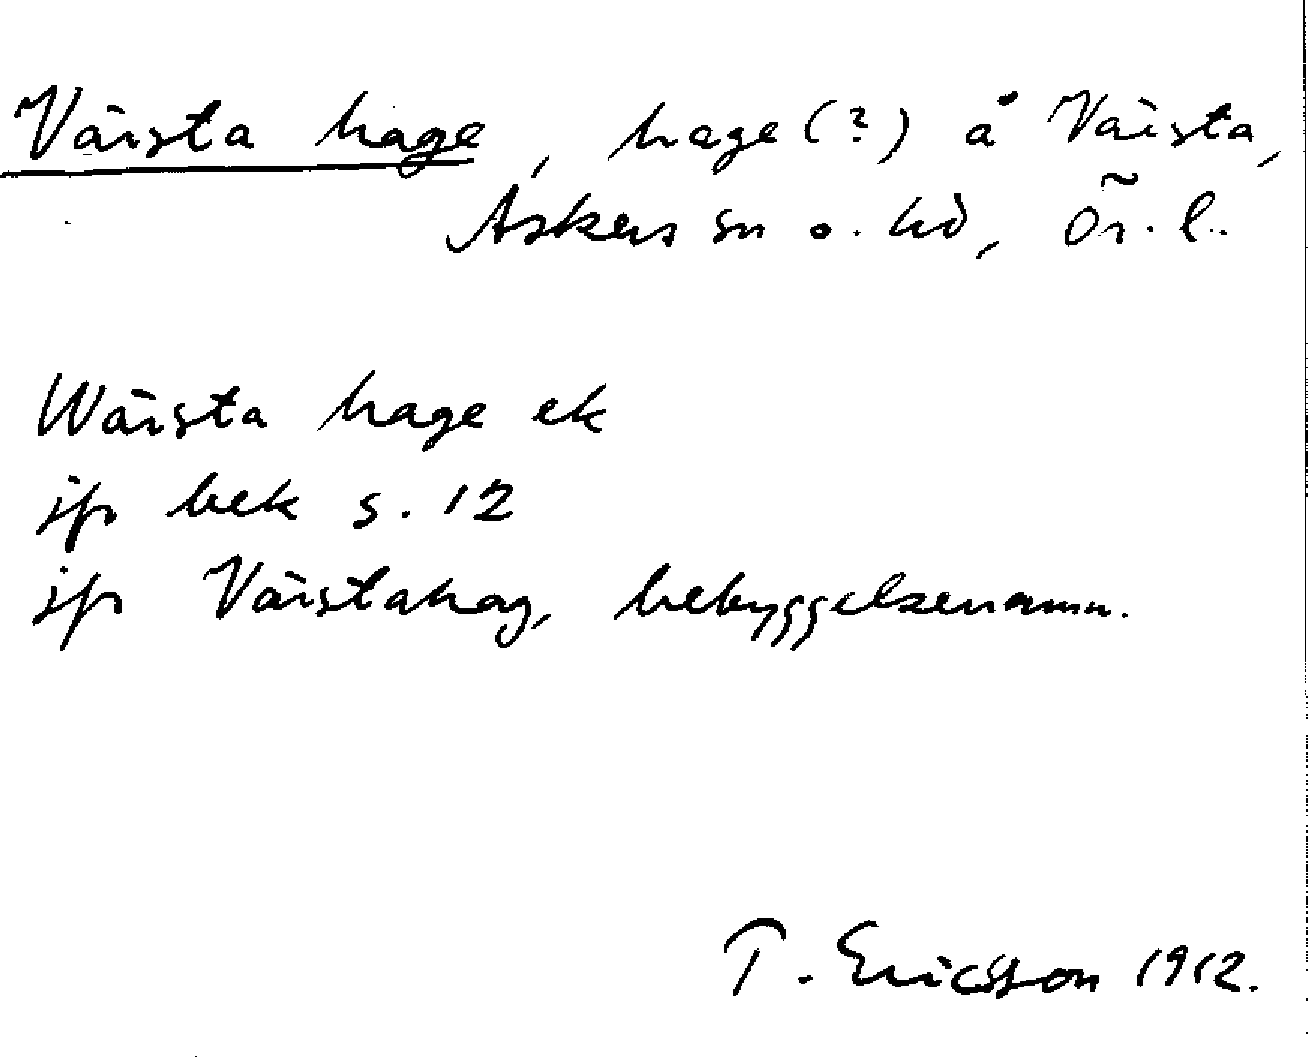 Värsta hage, hage(?) å Värsta,
Askers sn o. hd, Ör. l.
Wärsta hage ek
jfr bek s. 12
jfr Värstahag, bebyggelsenamn.
T. Ericsson 1912.